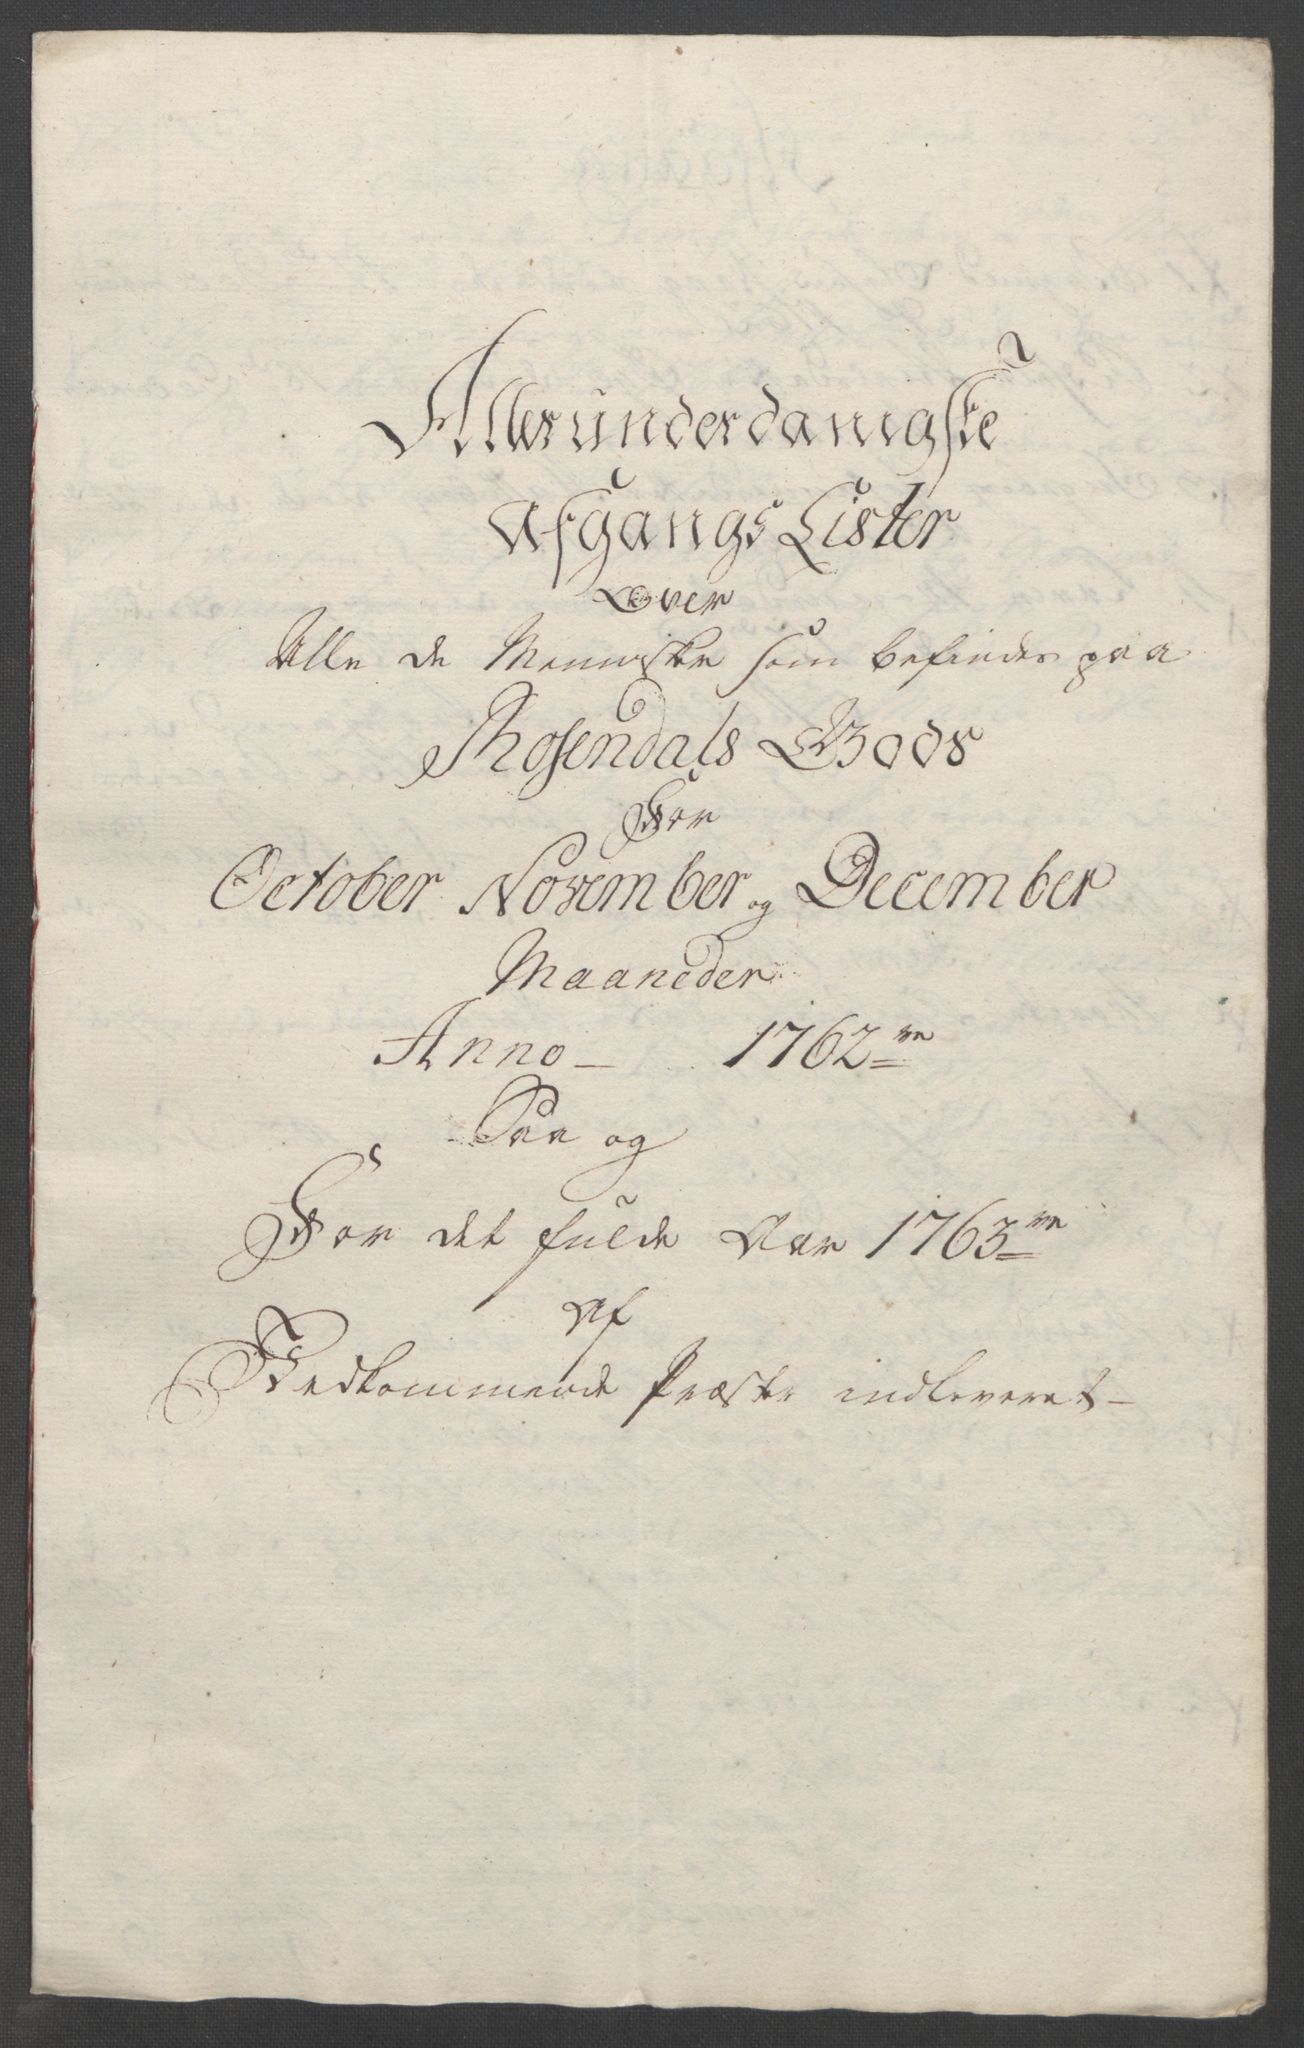 Allerunderdanigste
Afgangs Lister
Over
Alle de Menniske som befindes paa
Rosendals Gods
For
October November og December
Maaneder
Anno 1762re
Saa og
For det fulde Aar 1763re
Af
Vedkommende Præster indleveret